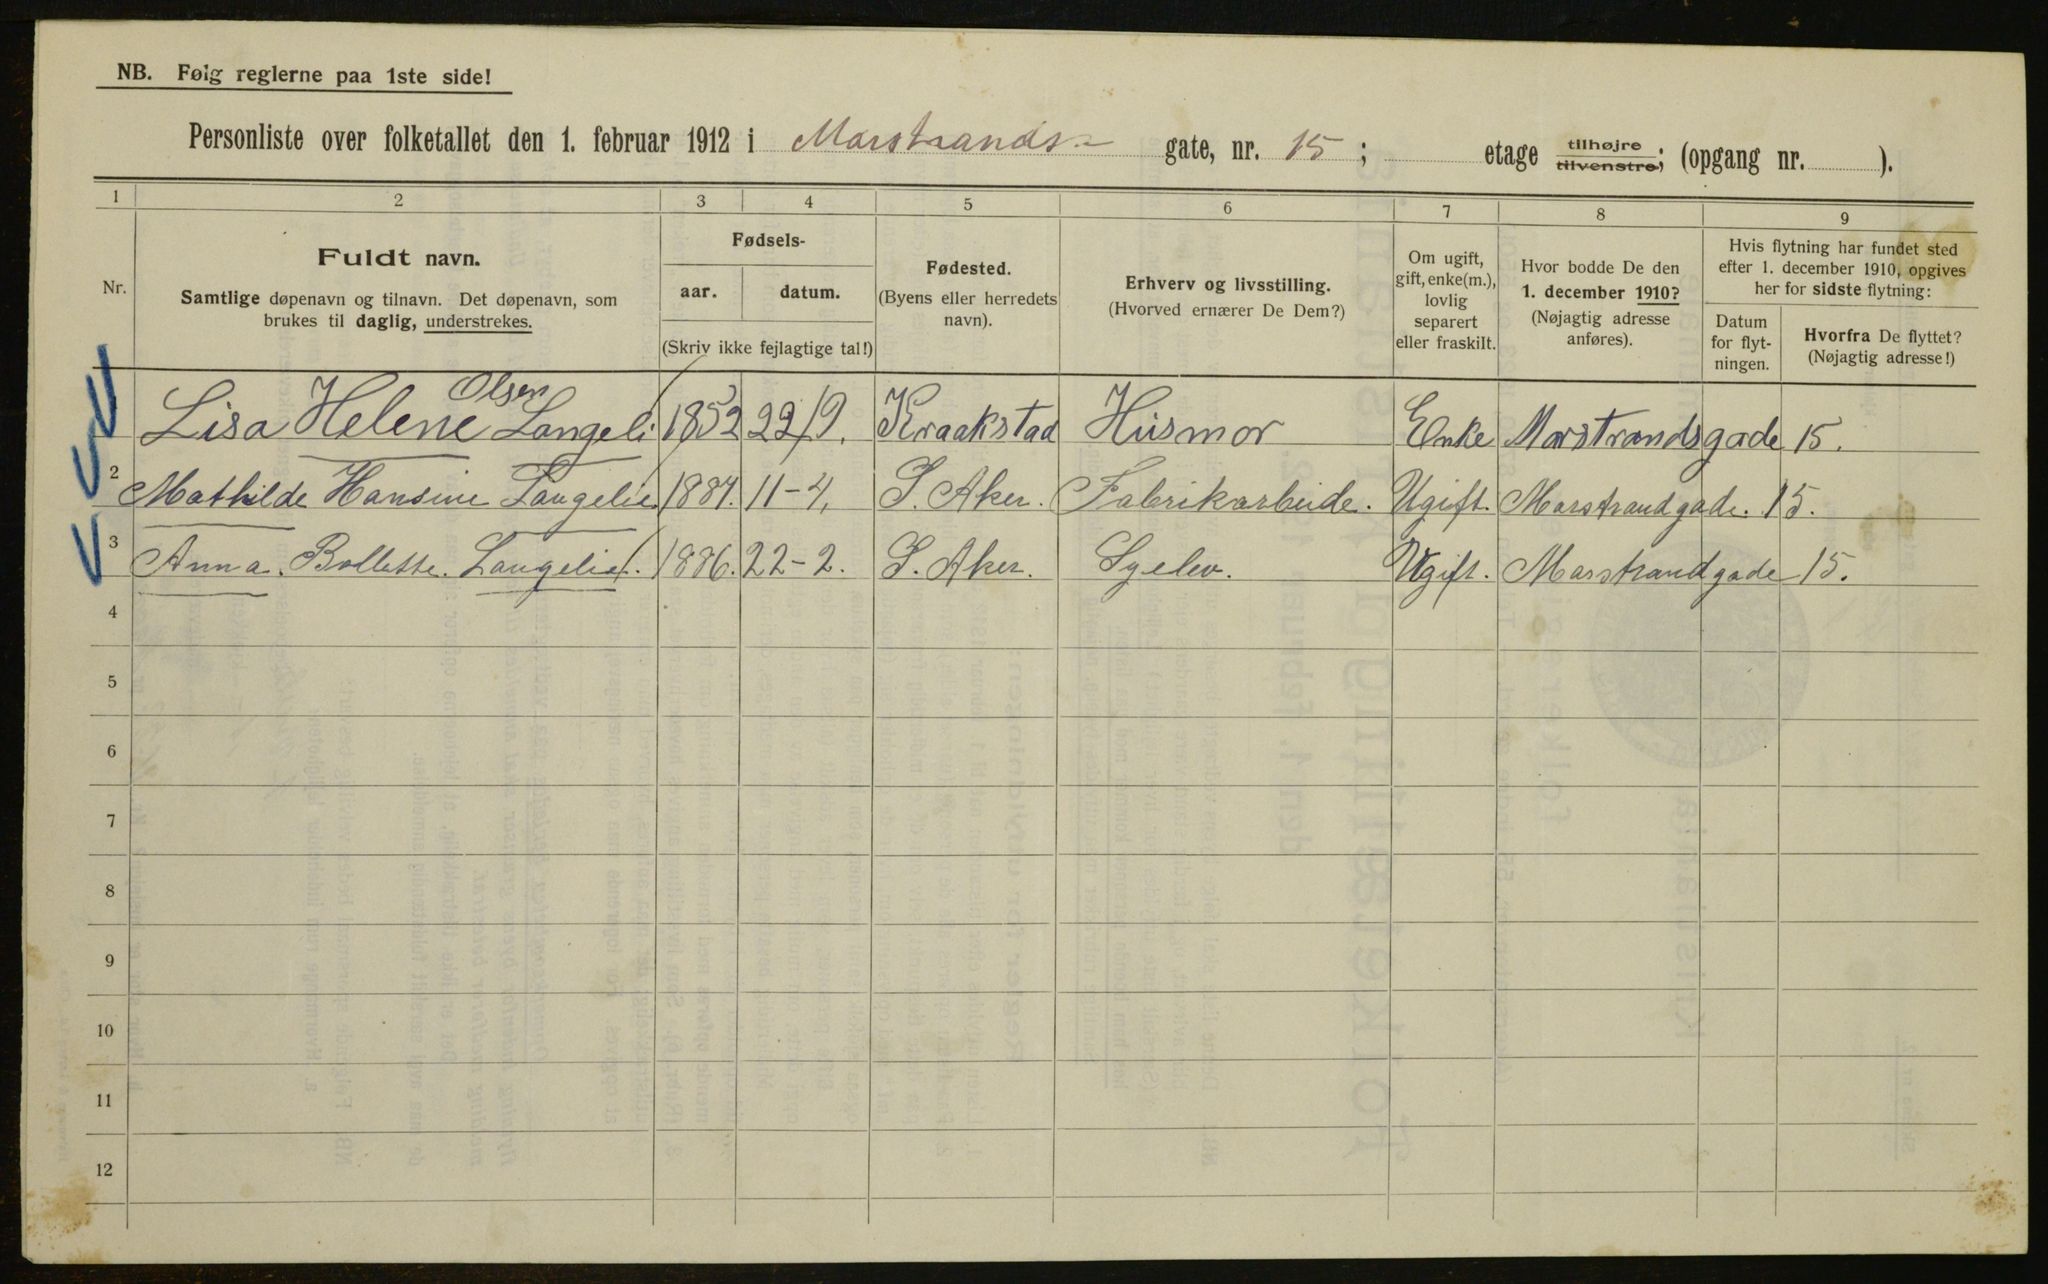 NB. Følg reglerne paa 1ste side!
Personliste over folketallet den 1. februar 1912 i Marstrands- gate, nr. 15 ; etage tilhøjre tilvenstre; (opgang nr. ).
1 2 3 4 5 6 7 8 9
Nr.
Fuldt navn.
Samtlige døpenavn og tilnavn. Det døpenavn, som
brukes til daglig, understrekes.
Fødsels-
aar. datum.
(Skriv ikke fejlagtige tal!)
Fødested.
(Byens eller herredets
navn).
Erhverv og livsstilling.
(Hvorved ernærer De Dem?)
Om ugift,
gift, enke(m.),
lovlig
separert
eller fraskilt.
Hvor bodde De den
1. december 1910?
(Nøjagtig adresse
anføres).
Hvis flytning har fundet sted
efter 1. december 1910, opgives
her for sidste flytning:
Datum
for flyt-
ningen.
Hvorfra De flyttet?
(Nøjagtig adresse!)
Olsen
Lisa Helene Langeli 1852 22/9. Kraakstad Husmor Enke Marstrandsgade 15.
2 Mathilde Hansine Langelie. 1884. 11-4, S. Aker. Fabrikarbeide. Ugift. Marstrandgade. 15.
3 Anna. Bollette. Langelie. 1886. 22-2. S. Aker. Syelev. Ugift. Marstrandgade 15.
4
5
6
7
8
9
10
11
12